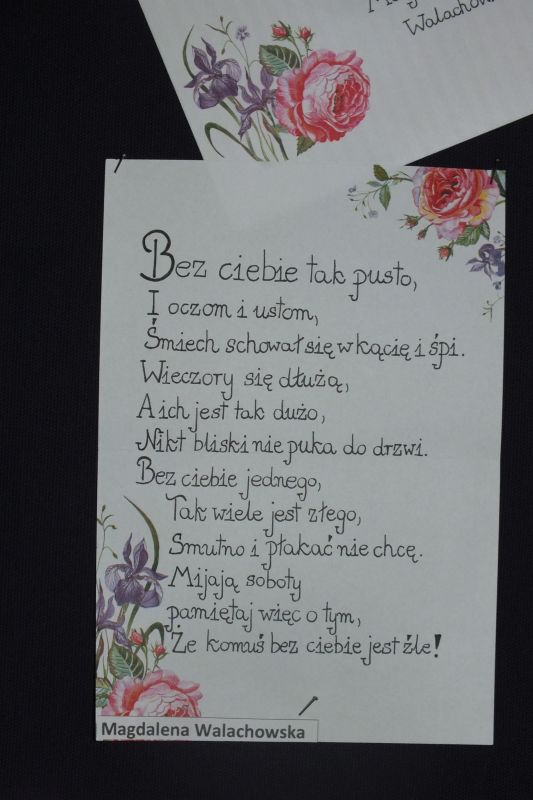 Walachow
Bez ciebie tak pusto,
I oczom i ustom,
Śmiech schował się w kącię i śpi.
Wieczory się dłużą,
A ich jest tak dużo,
Nikt bliski nie puka do drzwi.
Bez ciebie jednego,
Tak wiele jest złego,
Smutno i płakać nie chcę.
Mijają soboty
pamiętaj więc o tym,
Że komuś bez ciebie jest źle!
Magdalena Walachowska